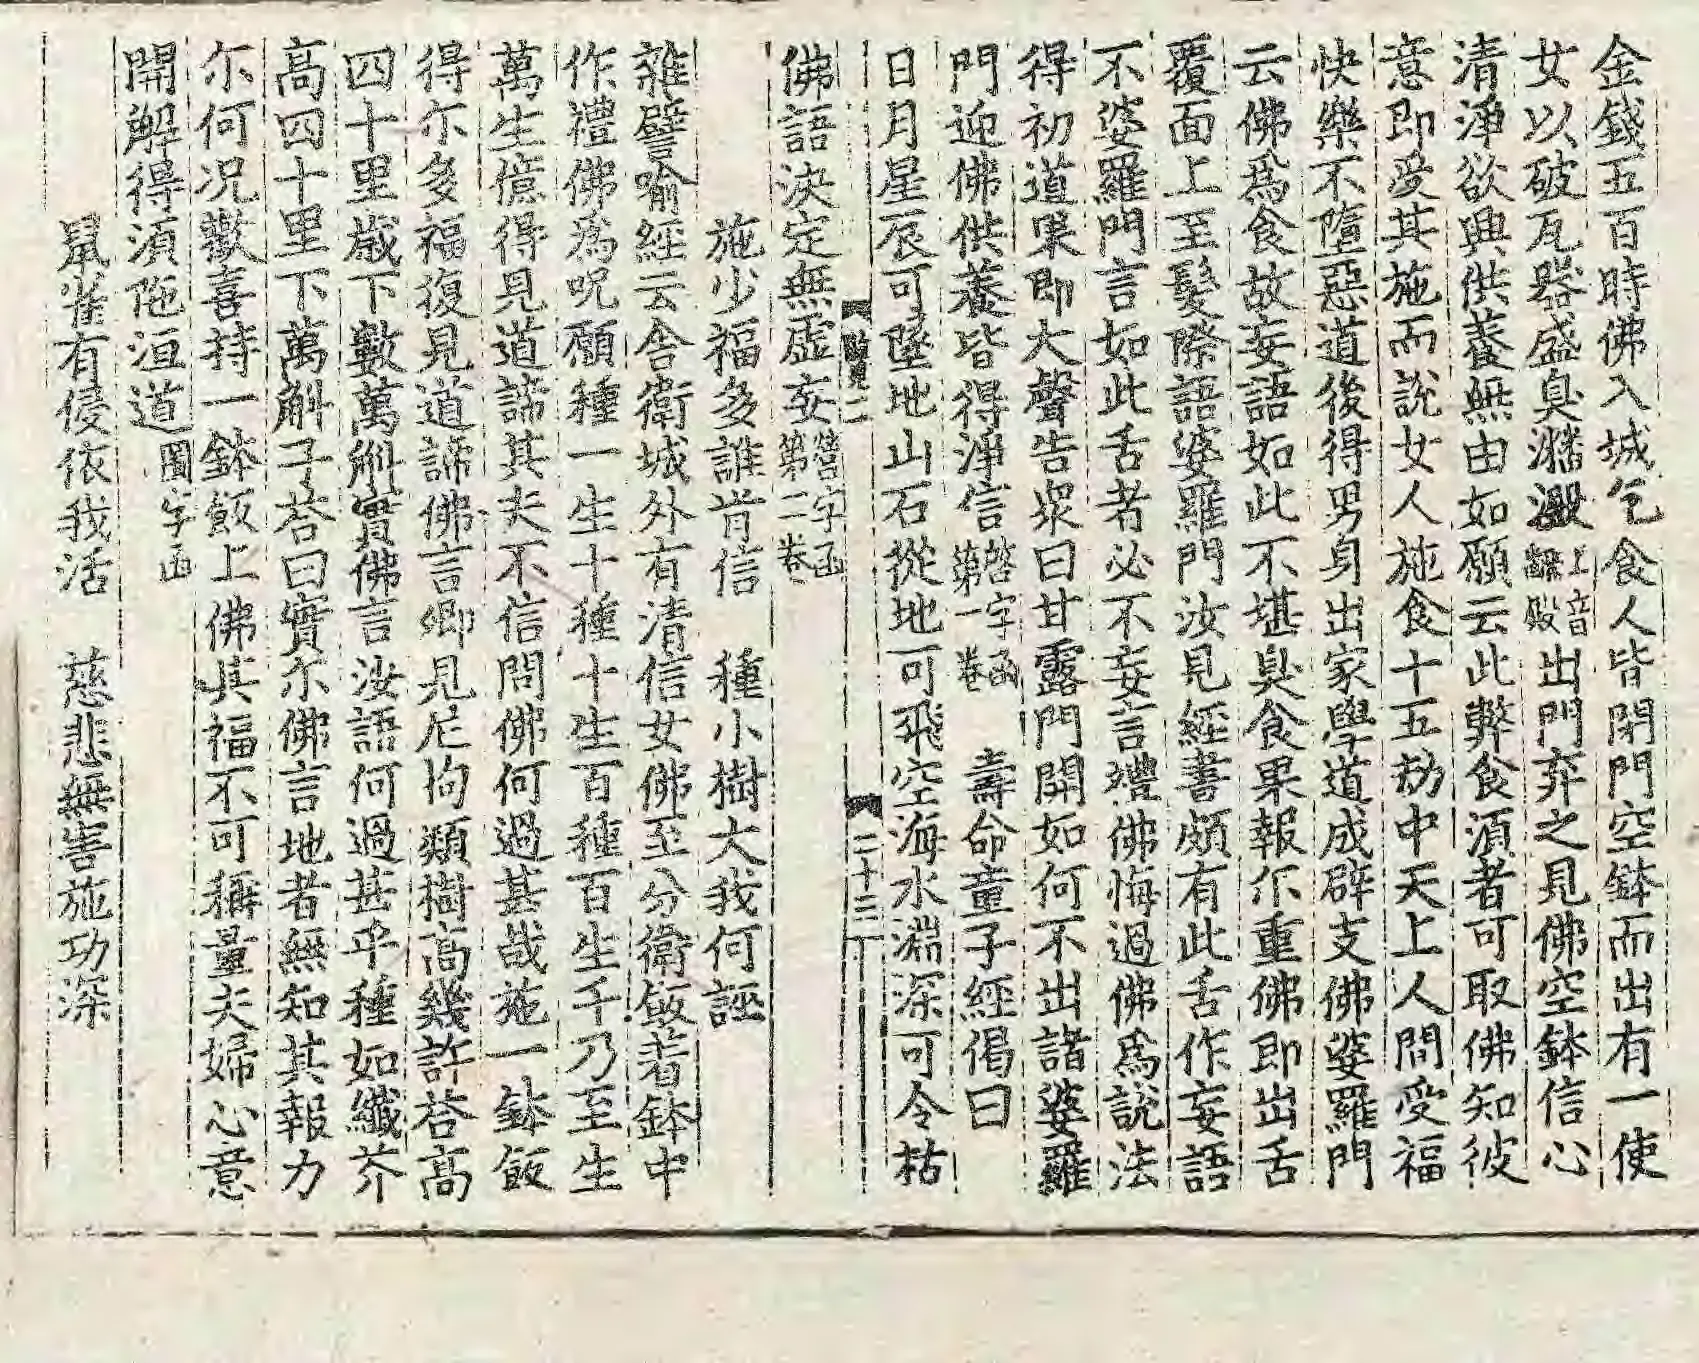 金錢五百時佛入城乞食人皆閉門空鉢而出有一使
女以破瓦器盛臭潘澱上音飜下音殿出門弃之見佛空鉢信心
清淨欲興供養無由如願云此弊食湏者可取佛知彼
意即受其施而說女人施食十五劫中天上人間受福
快樂不墮惡道後得男身出家學道成辟支佛婆羅門
云佛爲食故妄語如此不堪臭食果報尓重佛即出舌
覆面上至髮際語婆羅門汝見經書頗有此舌作妄語
不婆羅門言如此舌者必不妄言禮佛悔過佛爲說法
得初道果即大聲告衆曰甘露門開如何不出諸婆羅
門迎佛供養皆得淨信答字函第一卷　壽命童子經偈曰
日月星辰可墜地山石從地可飛空海水淵深可令枯
二十三
佛語決定無虛妄營字函第二卷
施少福多誰肯信　種小樹大我何誣
雜譬喻經云舍衛城外有清信女佛至分衛飯著鉢中
作禮佛爲呪願種一生十種十生百種百生千乃至生
萬生億得見道諦其夫不信問佛何過甚哉施一鉢飯
得尓多福復見道諦佛言卿見尼拘類樹高幾許荅高
四十里歲下數萬斛實佛言汝語何過甚乎種如纖芥
高四十里下萬斛子荅曰實尓佛言地者無知其報力
尓何况歡喜持一鉢飯上佛其福不可稱量夫婦心意
開解得湏陁洹道圖字函
鼠雀有侵依我活　慈悲無害施功深